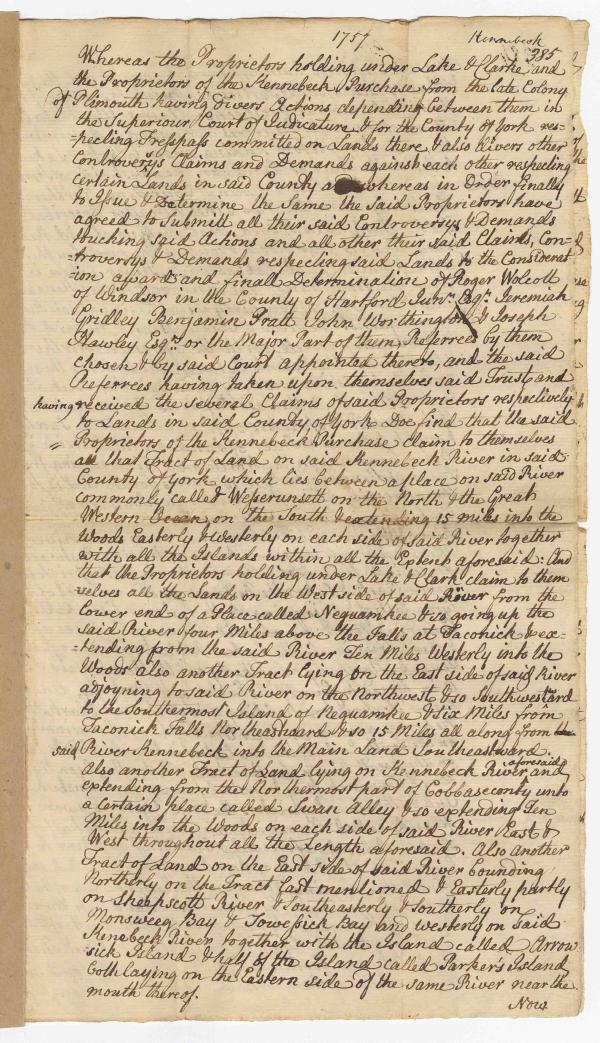 1757
Kennebeck
385
Whereas the Proprietors holding under Lake & Clarke and
the Proprietors of the Kennebeck Purchase from the late Colony
of Plimouth having divers Actions depending between them in
the Superiour Court of Judicature &c for the County of York res-
=pecting Tresspass committed on Lands there & also divers other
Controversys Claims and Demands against each other respecting
certain Lands in said County and whereas in Order finally
to Issue & Determine the Same the said Proprietors have
agreed to Submitt all their said Controversys & Demands
touching said Actions and all other their said Claims, Con-
=troversys & Demands respecting said Lands to the Considerat
=ion award and finall Determination of Roger Wolcott
of Windsor in the County of Hartford Junr. Esqr. Jeremiah
Gridley Benjamin Pratt John Worthington & Joseph
Hawley Esqrs. or the Major Part of them, Referrees by them
chosen & by said Court appointed thereto, and the said
Referrees having taken upon themselves said Trust and
having received the several Claims of said Proprietors respectively
to Lands in said County of York Doe find that the said
Proprietors of the Kennebeck Purchase claim to themselves
all that Tract of Land on said Kennebeck River in said
County of York which lies between a place on said River
commonly called Wesserunsett on the North & the Great
Western Ocean on the South & extending 15 miles into the
Woods Easterly & Westerly on each side of said River together
with all the Islands within all the Extent aforesaid: And
that the Proprietors holding under Lake & Clark claim to them
selves all the Lands on the West side of said River from the
Lower end of a Place called Nequamkee & so going up the
said River four Miles above the Falls at Taconick & ex=
=tending from the said River Ten Miles Westerly into the
Woods also another Tract lying on the East side of said River
adjoyning to said River on the Northwest & so Southwestward
to the Southermost Island of Nequamkee & Six Miles from
Taconick Falls Northeastward & so 15 Miles all along from
said River Kennebeck into the Main Land Southeastward.
Also another Tract of Land lying on Kennebeck River aforesaid and
extending from the Northermost part of Cobbaseconty unto
a certain place called Swan Alley & so extending Ten
Miles into the Woods on each side of said River East &
West throughout all the Length aforesaid. Also Another
Tract of Land on the East side of said River bounding
Northerly on the Tract last mentioned & Easterly partly
on Sheepscott River & Southeasterly & Southerly on
Monsweeg Bay & Towessick Bay and Westerly on said
Kenebeck River together with the Island called Arrow
sick Island & half of the Island called Parker's Island
both laying on the Eastern side of the same River near the
mouth thereof.
Now